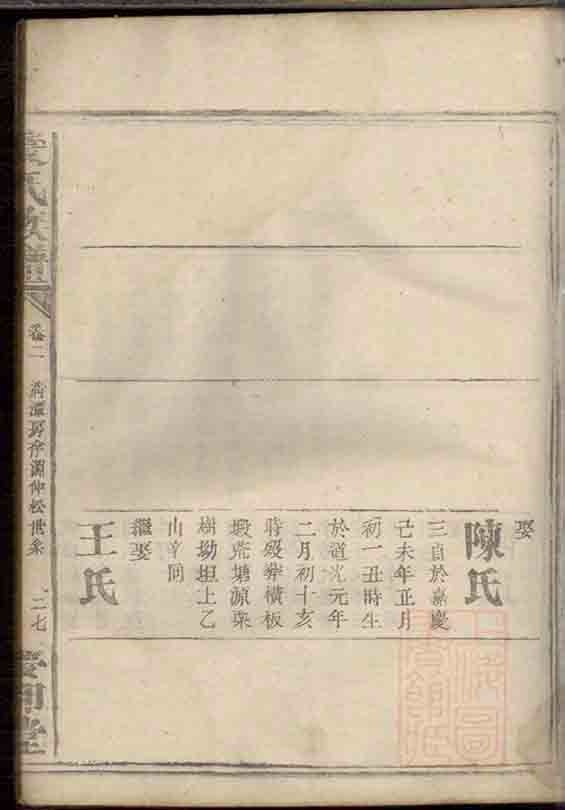 娶
陳氏
三貞於嘉慶
己未年正月
初一丑時生
於道光元年
二月初十亥
時殁葬橫板
塅荒塘源菜
樹坳坦上乙
山辛向
繼娶
王氏
氏族譜
卷二
房 淵仲松世系
一二七
堂